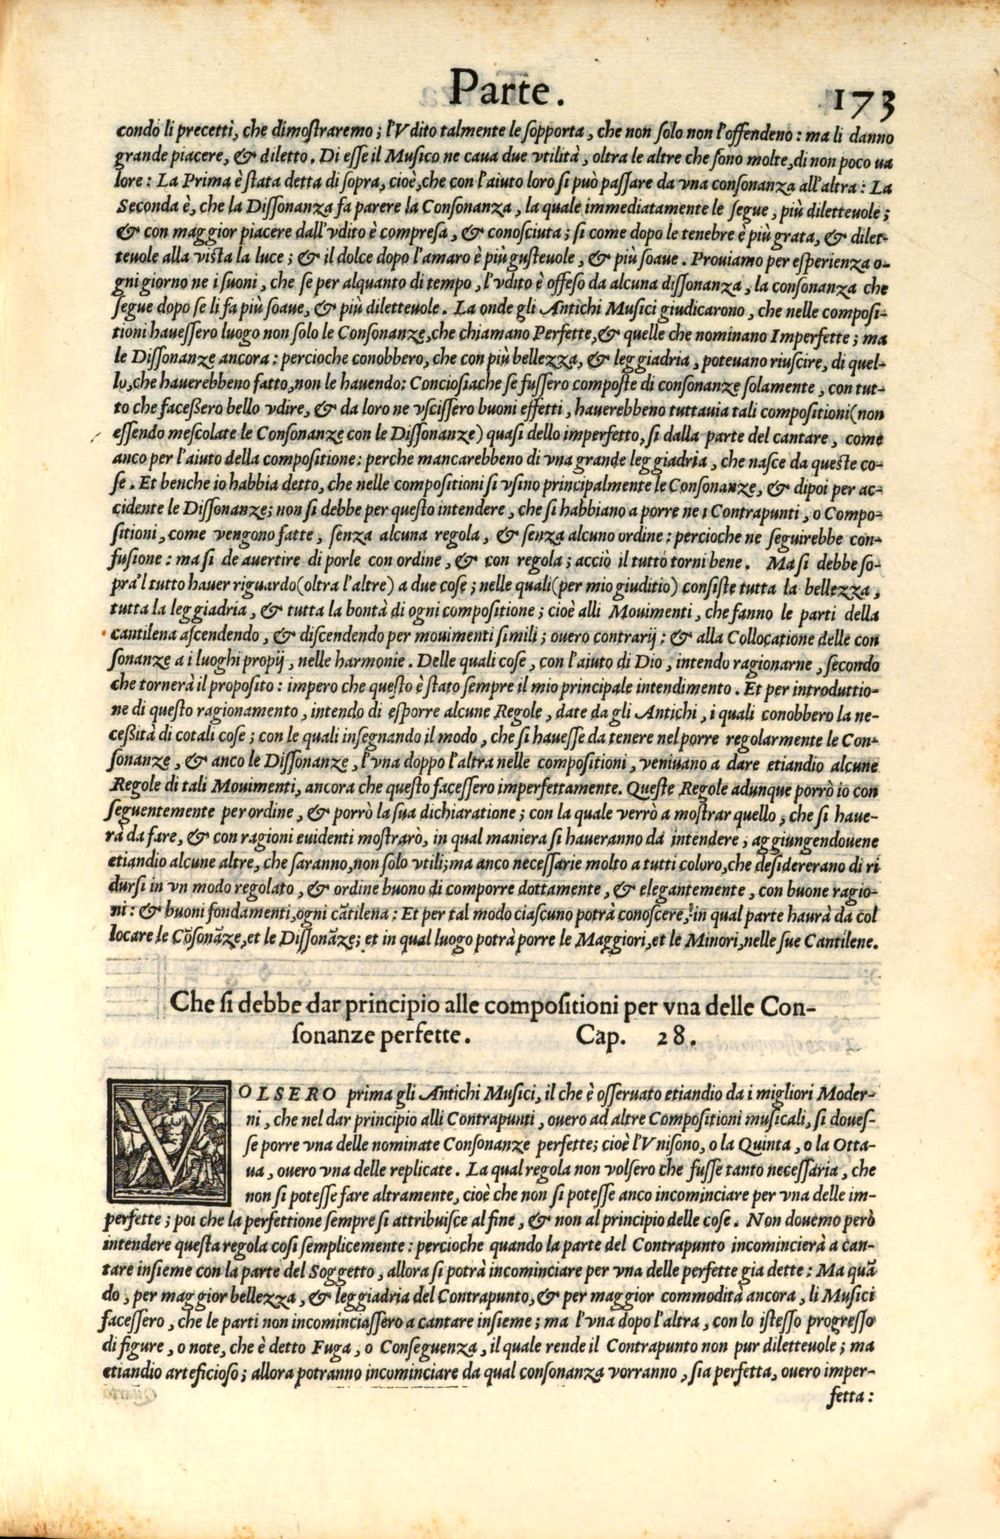 Parte. 173
condo li precetti, che dimoſtraremo; l'Vdito talmente le ſopporta, che non ſolo non l'offendeno: ma li danno
grande piacere, & diletto. Di eſſe il Muſico ne caua due vtilità, oltra le altre che ſono molte, di non poco ua
lore: La Prima è ſtata detta di ſopra, cioè, che con l'aiuto loro ſi può paſſare da vna conſonanza all'altra: La
Seconda è, che la Diſſonanza fa parere la Conſonanza, la quale immediatamente le ſegue, più diletteuole;
& con maggior piacere dall'vdito è compreſa, & conoſciuta; ſi come dopo le tenebre è più grata, & dilet-
teuole alla viſta la luce; & il dolce dopo l'amaro è più guſteuole, & più ſoaue. Prouiamo per eſperienza o-
gni giorno ne i ſuoni, che ſe per alquanto di tempo, l'vdito è offeſo da alcuna diſſonanza, la conſonanza che
ſegue dopo ſe li fa più ſoaue, & più diletteuole. La onde gli Antichi Muſici giudicarono, che nelle compoſi-
tioni haueſſero luogo non ſolo le Conſonanze, che chiamano Perfette, & quelle che nominano Imperfette; ma
le Diſſonanze ancora: percioche conobbero, che con più bellezza, & leggiadria, poteuano riuſcire, di quel-
lo, che hauerebbeno fatto, non le hauendo: Concioſiache ſe fuſſero compoſte di conſonanze ſolamente, con tut-
to che faceßero bello vdire, & da loro ne vſciſſero buoni effetti, hauerebbeno tuttauia tali compoſitioni (non
eſſendo meſcolate le Conſonanze con le Diſſonanze) quaſi dello imperfetto, ſi dalla parte del cantare, come
anco per l'aiuto della compoſitione: perche mancarebbeno di vna grande leggiadria, che naſce da queſte co-
ſe. Et benche io habbia detto, che nelle compoſitioni ſi vſino principalmente le Conſonanze, & dipoi per ac-
cidente le Diſſonanze; non ſi debbe per queſto intendere, che ſi habbiano a porre ne i Contrapunti, o Compo-
ſitioni, come vengono fatte, ſenza alcuna regola, & ſenza alcuno ordine: percioche ne ſeguirebbe con-
fuſione: ma ſi de auertire di porle con ordine, & con regola; acciò il tutto torni bene. Ma ſi debbe ſo-
pra'l tutto hauer riguardo (oltra l'altre) a due coſe; nelle quali (per mio giuditio) conſiſte tutta la bellezza,
tutta la leggiadria, & tutta la bontà di ogni compoſitione; cioè alli Mouimenti, che fanno le parti della
cantilena aſcendendo, & diſcendendo per mouimenti ſimili; ouero contrarij: & alla Collocatione delle con
ſonanze a i luoghi propij, nelle harmonie. Delle quali coſe, con l'aiuto di Dio, intendo ragionarne, ſecondo
che tornerà il propoſito: impero che queſto è ſtato ſempre il mio principale intendimento. Et per introduttio-
ne di queſto ragionamento, intendo di eſporre alcune Regole, date da gli Antichi, i quali conobbero la ne-
ceßità di cotali coſe; con le quali inſegnando il modo, che ſi haueſſe da tenere nel porre regolarmente le Con-
ſonanze, & anco le Diſſonanze, l'vna doppo l'altra nelle compoſitioni, veniuano a dare etiandio alcune
Regole di tali Mouimenti, ancora che queſto faceſſero imperfettamente. Queſte Regole adunque porrò io con
ſeguentemente per ordine, & porrò la ſua dichiaratione; con la quale verrò a moſtrar quello, che ſi haue-
rà da fare, & con ragioni euidenti moſtrarò, in qual maniera ſi haueranno da intendere; aggiungendouene
etiandio alcune altre, che ſaranno, non ſolo vtili; ma anco neceſſarie molto a tutti coloro, che deſidererano di ri
durſi in vn modo regolato, & ordine buono di comporre dottamente, & elegantemente, con buone ragio-
ni: & buoni fondamenti, ogni cãtilena: Et per tal modo ciaſcuno potrà conoſcere, in qual parte haurà da col
locare le Cõſonãze, et le Diſſonãze; et in qual luogo potrà porre le Maggiori, et le Minori, nelle ſue Cantilene.
Che ſi debbe dar principio alle compoſitioni per vna delle Con-
ſonanze perfette. Cap. 28.
VOLSERO prima gli Antichi Muſici, il che è oſſeruato etiandio da i migliori Moder-
ni, che nel dar principio alli Contrapunti, ouero ad altre Compoſitioni muſicali, ſi doueſ-
ſe porre vna delle nominate Conſonanze perfette; cioè l'Vniſono, o la Quinta, o la Otta-
ua, ouero vna delle replicate. La qual regola non volſero che fuſſe tanto neceſſaria, che
non ſi poteſſe fare altramente, cioè che non ſi poteſſe anco incominciare per vna delle im-
perfette; poi che la perfettione ſempre ſi attribuiſce al fine, & non al principio delle coſe. Non douemo però
intendere queſta regola coſi ſemplicemente: percioche quando la parte del Contrapunto incomincierà a can-
tare inſieme con la parte del Soggetto, allora ſi potrà incominciare per vna delle perfette gia dette: Ma quã
do, per maggior bellezza, & leggiadria del Contrapunto, & per maggior commodità ancora, li Muſici
faceſſero, che le parti non incominciaſſero a cantare inſieme; ma l'vna dopo l'altra, con lo iſteſſo progreſſo
di figure, o note, che è detto Fuga, o Conſeguenza, il quale rende il Contrapunto non pur diletteuole; ma
etiandio arteficioſo; allora potranno incominciare da qual conſonanza vorranno, ſia perfetta, ouero imper-
fetta: